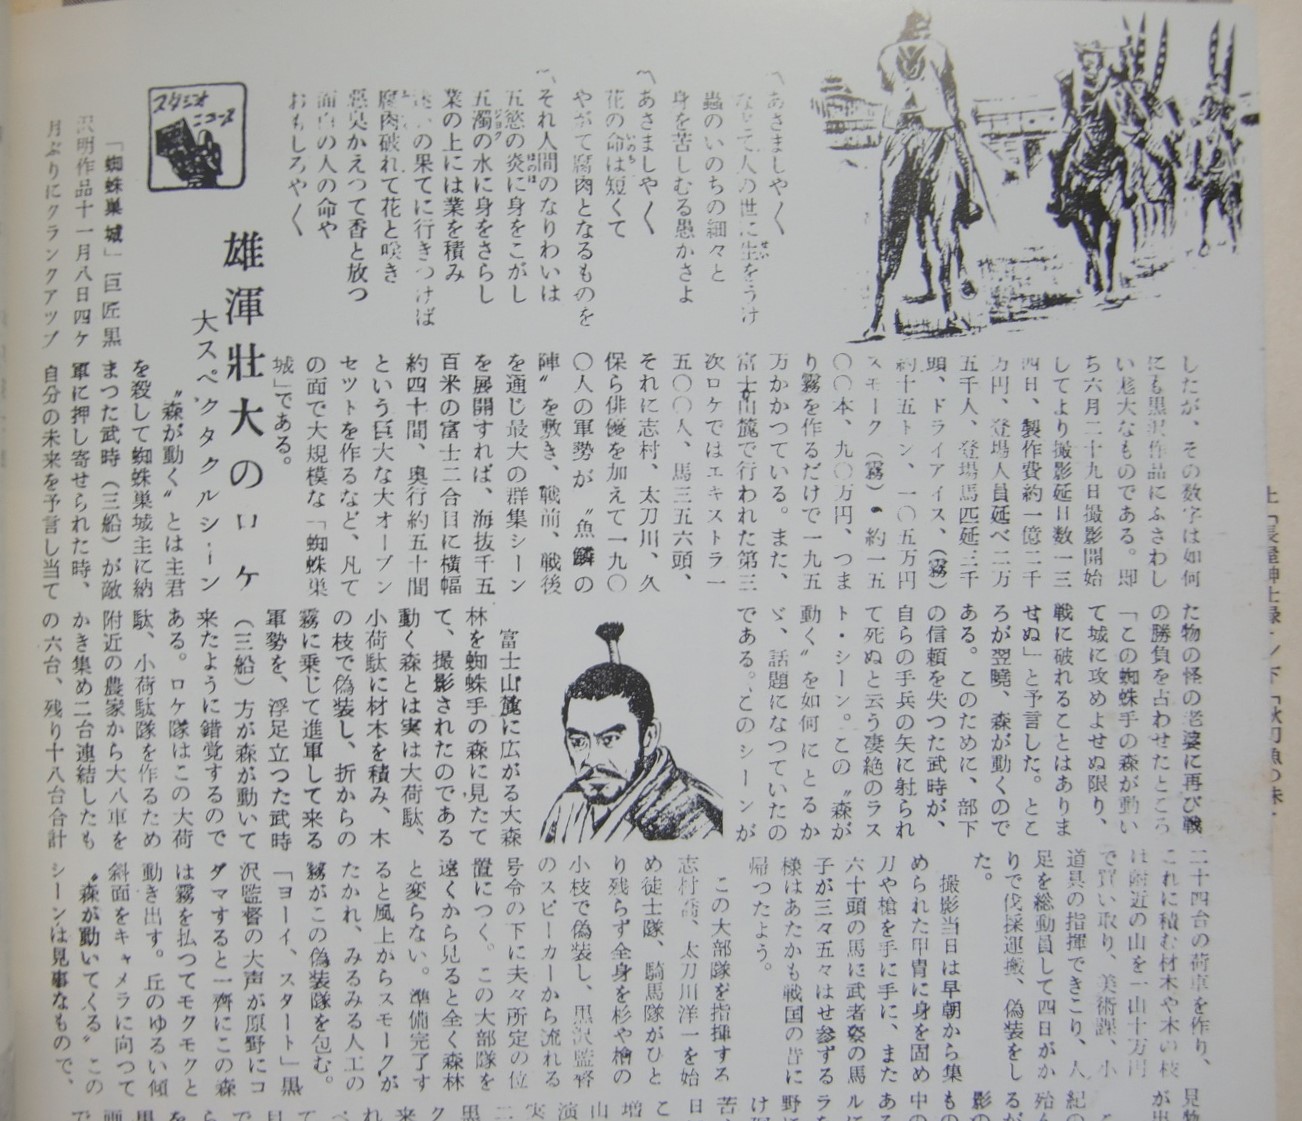 あさましや〱
なにとて人の世に生をうけ
蟲のいのちの細々と
身を苦しむる愚かさよ
あさましや〱
花の命は短くて
やがて腐肉となるものを
それ人間のなりわいは
五慾の炎に身をこがし
五濁の水に身をさらし
業の上には業を積み
の果てに行きつけば
腐肉破れて花と咲き
悪臭かえつて香と放つ
面白の人の命や
おもしろや〱
スタジオ
ニュース
雄渾壮大のロケ
大スペクタクルシーン
「蜘蛛巣城」巨匠黒
沢明作品十一月八日四ケ
月ぶりにクランクアップ
したが、その数字は如何
にも黒沢作品にふさわし
い尨大なものである。即
ち六月二十九日撮影開始
してより撮影延日数一三
四日、製作費約一億二千
万円、登場人員延べ二万
五千人、登場馬匹延三千
頭、ドライアイス、(霧)
約十五トン、一〇五万円
スモーク(霧)約一五
〇〇本、九〇万円、つま
り霧を作るだけで一九五
万かかつている。また、
富士山麓で行われた第三
次ロケではエキストラ一
五〇〇人、馬三五六頭、
それに志村、太刀川、久
保ら俳優を加えて一九〇
〇人の軍勢が〝魚鱗の
陣〟を敷き、戦前、戦後
を通じ最大の群集シーン
を展開すれば、海抜千五
百米の富士二合目に横幅
約四十間、奥行約五十間
という巨大な大オープン
セットを作るなど、凡て
の面で大規模な「蜘蛛巣
城」である。
〝森が動く〟とは主君
を殺して蜘蛛巣城主に納
まつた武時(三船)が敵
軍に押し寄せられた時、
自分の未来を予言し当て
た物の怪の老婆に再び戦
の勝負を占わせたところ
「この蜘蛛手の森が動い
て城に攻めよせぬ限り、
戦に破れることはありま
せぬ」と予言した。とこ
ろが翌暁、森が動くので
ある。このために、部下
の信頼を失つた武時が、
自らの手兵の矢に射られ
て死ぬと云う凄絶のラス
ト・シーン。この〝森が
動く〟を如何にとるか
ゞ、話題になつていたの
である。このシーンが
富士山麓に広がる大森
林を蜘蛛手の森に見たて
て、撮影されたのである
動く森とは実は大荷駄、
小荷駄に材木を積み、木
の枝で偽装し、折からの
霧に乗じて進軍して来る
軍勢を、浮足立つた武時
(三船)方が森が動いて
来たように錯覚するので
ある。ロケ隊はこの大荷
駄、小荷駄隊を作るため
附近の農家から大八車を
かき集め二台連結したも
の六台、残り十八台合計
二十四台の荷車を作り、
これに積む材木や木の枝
は附近の山を一山十万円
で買い取り、美術課、小
道具の指揮できこり、人
足を総動員して四日がか
りで伐採運搬、偽装をし
た。
撮影当日は早朝から集
められた甲冑に身を固め
刀や槍を手に手に、また
六十頭の馬に武者姿の馬
子が三々五々はせ参ずる
様はあたかも戦国の昔に
帰つたよう。
この大部隊を指揮する
志村喬、太刀川洋一を始
め徒士隊、騎馬隊がひと
り残らず全身を杉や檜の
小枝で偽装し、黒沢監督
のスピーカーから流れる
号令の下に夫々所定の位
置につく。この大部隊を
遠くから見ると全く森林
と変らない。準備完了す
ると風上からスモークが
たかれ、みるみる人工の
霧がこの偽装隊を包む。
「ヨーイ、スタート」黒
沢監督の大声が原野にコ
ダマすると一斉にこの森
は霧を払つてモクモクと
動き出す。丘のゆるい傾
斜面をキャメラに向つて
〝森が動いてくる〟この
シーンは見事なもので、